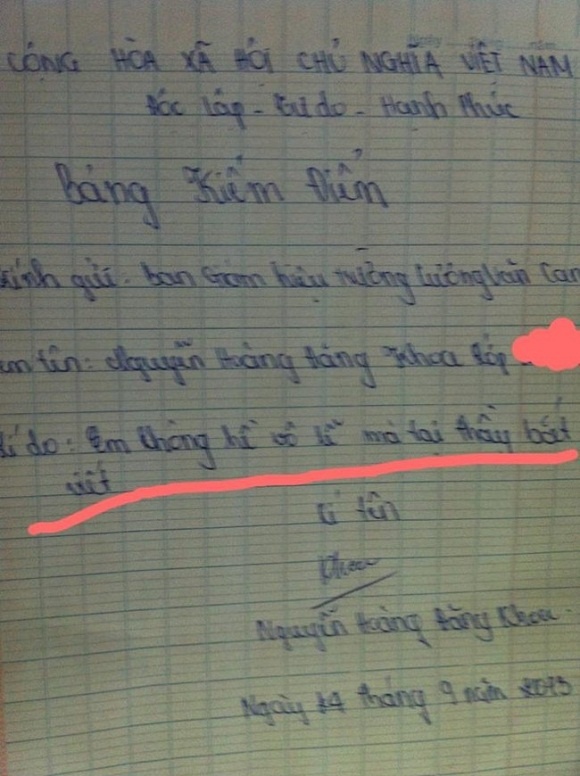 CỘNG HÒA XÃ HỘI CHỦ NGHĨA VIỆT NAM
Độc lập - Tự do - Hạnh Phúc
Bảng Kiểm Điểm
Kính gửi: ban Giám hiệu trường Lương Văn Can
Em tên: Nguyễn Hoàng Đăng Khoa lớp
Lí do: Em không hề vô lễ mà tại thầy bắt
viết
Kí tên
Khoa
Nguyễn Hoàng Đăng Khoa
Ngày 24 tháng 9 năm 2013